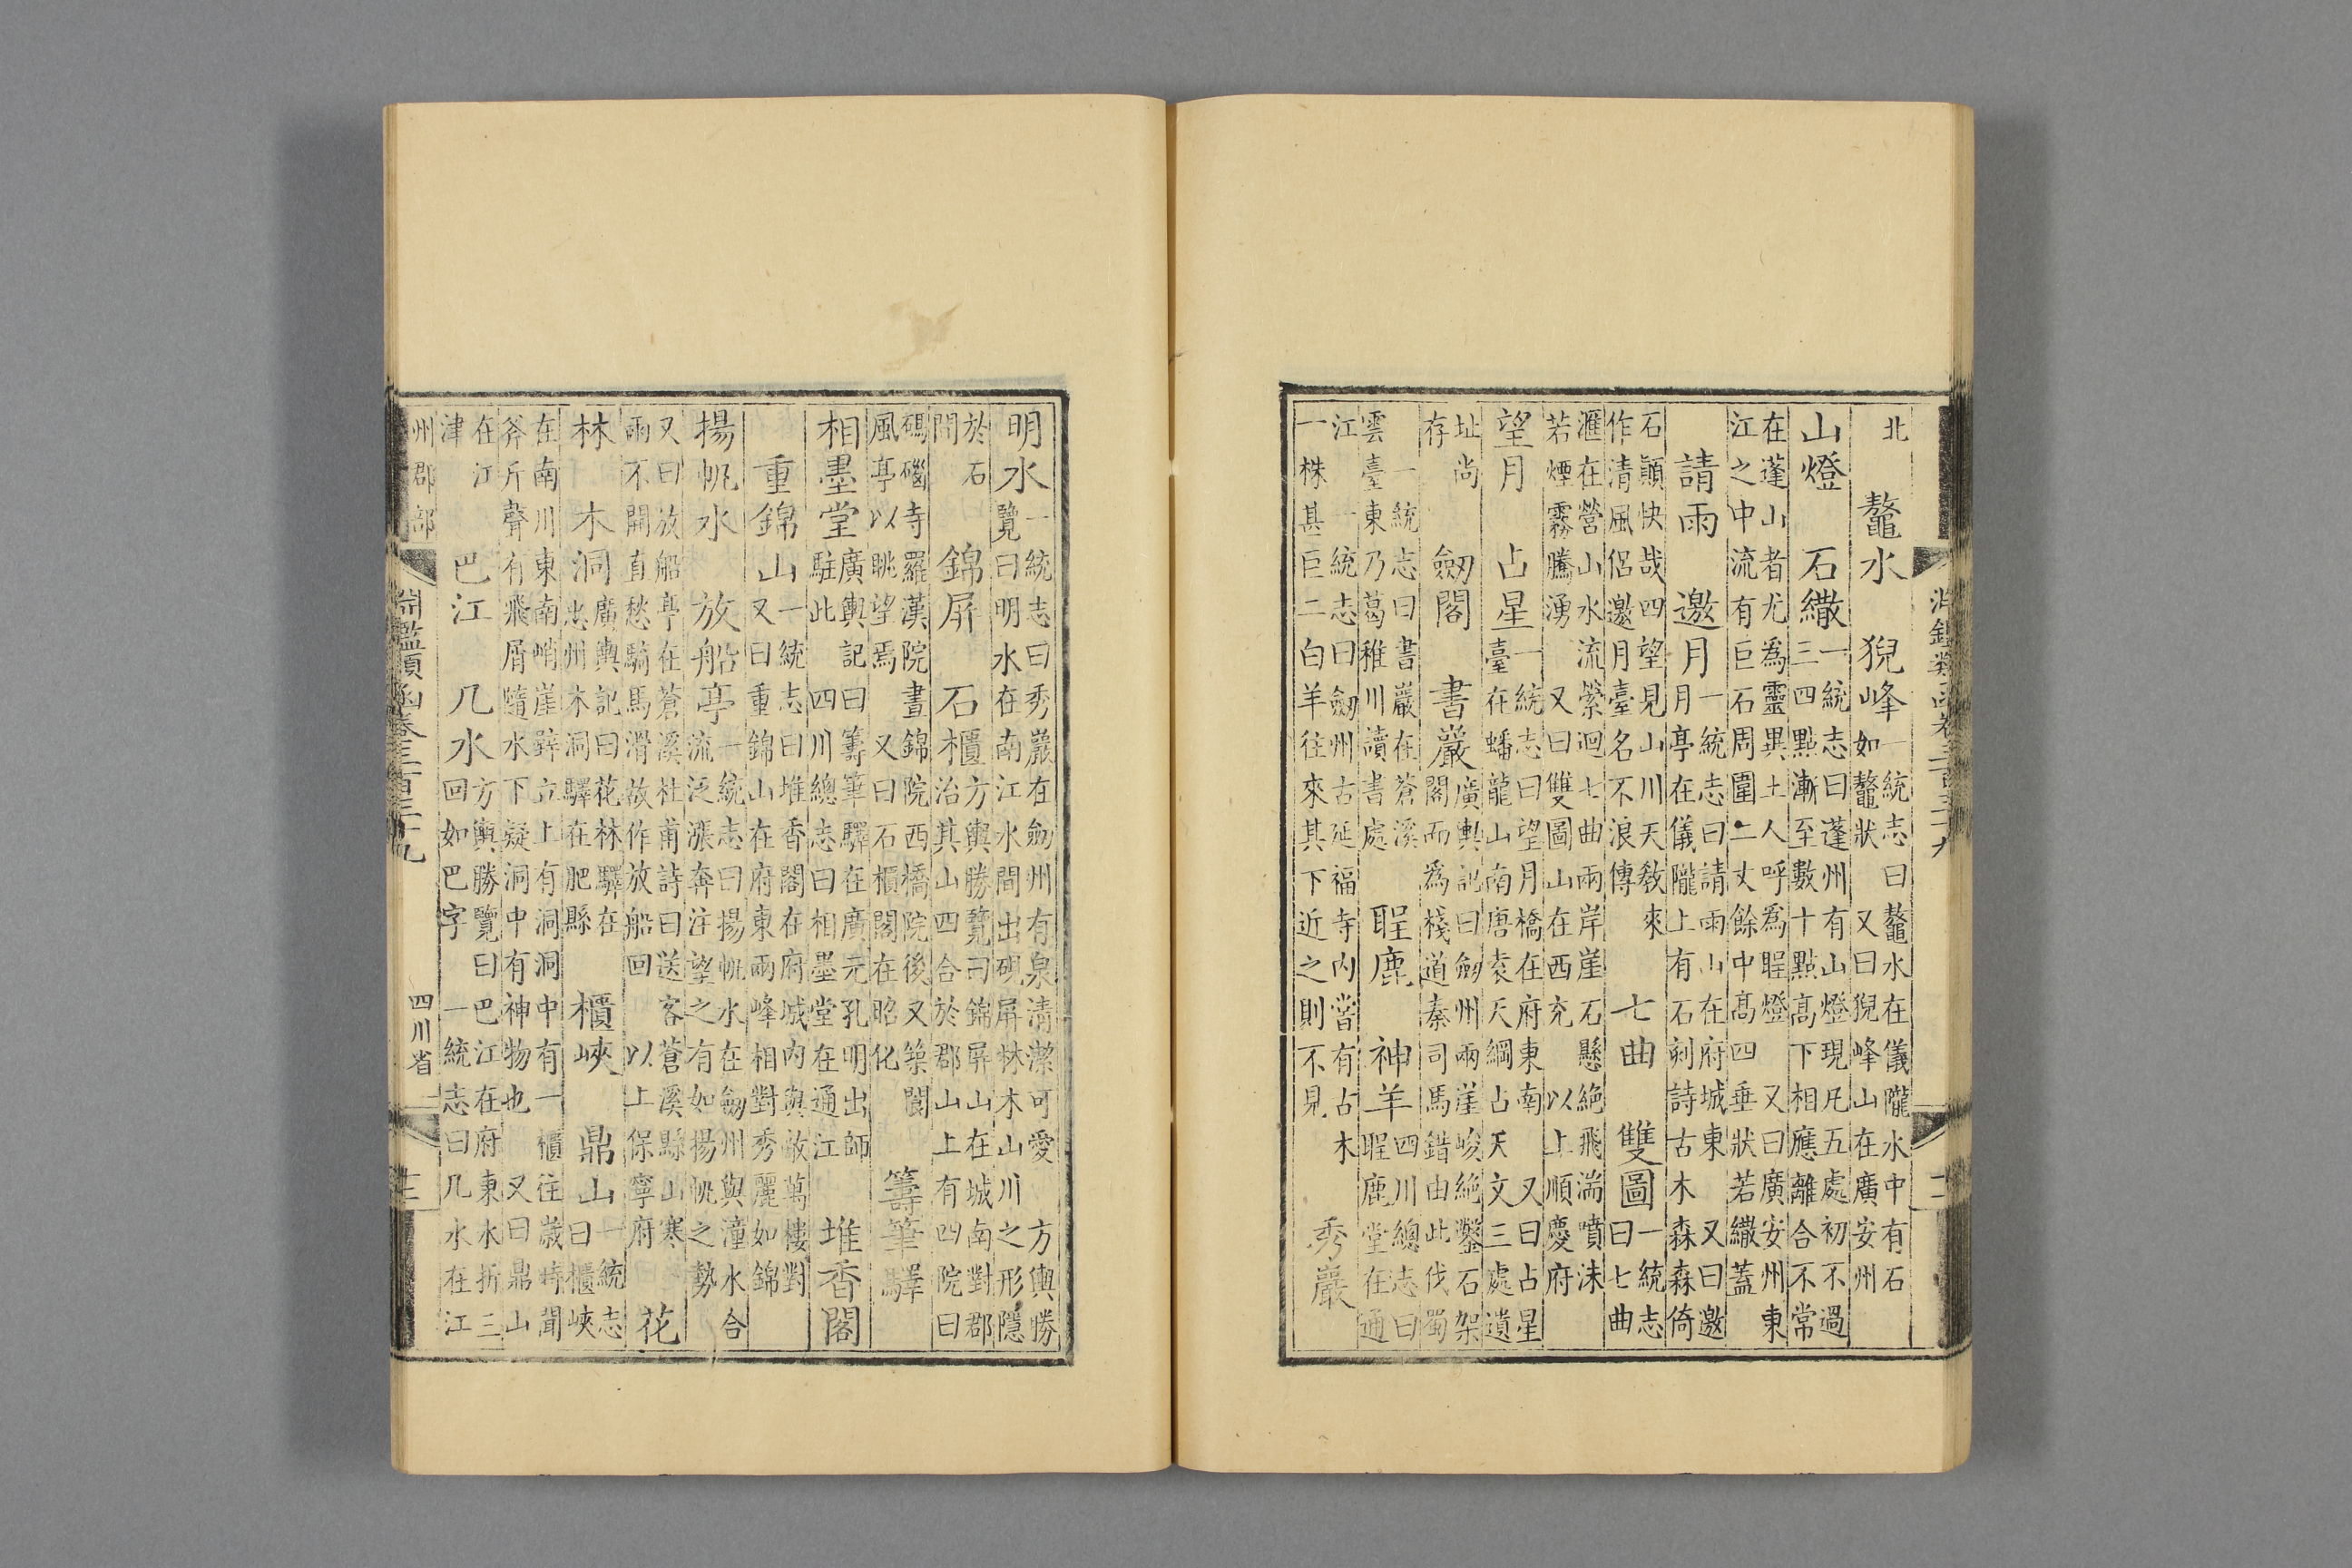 淵鑑類函卷三百三十九
北
鼇水 猊峰
一統志曰鼇水在儀隴水中有石
如鼇狀 又曰猊峰山在廣安州
山燈 石繖
一統志曰蓬州有山燈現凡五處初不過
三四點漸至數十點高下相應離合不常
在蓬山者尤為靈異土人呼為聖燈 又曰廣安州東
江之中流有巨石周圍二丈餘中高四垂狀若繖蓋
請雨 邀月
一統志曰請雨山在府城東 又曰邀
月亭在儀隴上有石刻詩古木森森倚
石顛快哉四望見山川天教來
作清風侶邀月臺名不浪傳
七曲 雙圖
一統志
曰七曲
滙在營山水流縈迴七曲兩岸崖石懸絶飛湍噴沫
若煙霧騰湧 又曰雙圖山在西充 以上順慶府
望月 占星
一統志曰望月橋在府東南 又曰占星
臺在蟠龍山南唐袁天綱占天文三處遺
址尚
存
劒閣 書巖
廣輿記曰劒州兩崖峻絶鑿石架
閣而為棧道秦司馬錯由此伐蜀
一統志曰書巖在蒼溪
雲臺東乃葛稚川讀書處
聖鹿 神羊
四川總志曰
聖鹿堂在通
江 一統志曰劒州古延福寺内嘗有古木
一株其巨二白羊往來其下近之則不見
秀巖
明水
一統志曰秀巖在劒州有泉清潔可愛 方輿勝
覽曰明水在南江水間出硯屏林木山川之形隱
於石
間
錦屏 石櫃
方輿勝覽曰錦屏山在城南對郡
治其山四合於郡山上有四院曰
碼碯寺羅漢院晝錦院西橋院後又築闤
風亭以眺望焉 又曰石櫃閣在昭化
籌筆驛
相墨堂
廣輿記曰籌筆驛在廣元孔明出師
駐此 四川總志曰相墨堂在通江
堆香閣
重錦山
一統志曰堆香閣在府城内與敵萬樓對
又曰重錦山在府東兩峰相對秀麗如錦
揚帆水 放船亭
一統志曰揚帆水在劒州與潼水合
流泛漲奔注望之有如揚帆之勢
又曰放船亭在蒼溪杜甫詩曰送客蒼溪縣山寒
雨不開直愁騎馬滑故作放船回 以上保寧府
花
林 木洞
廣輿記曰花林驛在
忠州木洞驛在肥縣
櫃峽 鼎山
一統志
曰櫃峽
在南川東南峭崖壁立上有洞洞中有一櫃往歲時聞
斧斤聲有飛屑隨水下疑洞中有神物也 又曰鼎山
在江
津
巴江 几水
方輿勝覽曰巴江在府東水折三
回如巴字 一統志曰几水在江
州郡部
淵鑑類函卷三百三十九
四川省